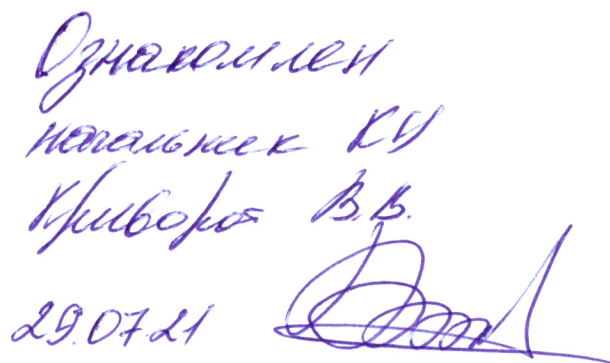 Ознакомлен
начальник КУ
Криворот В.В.
29.07.21